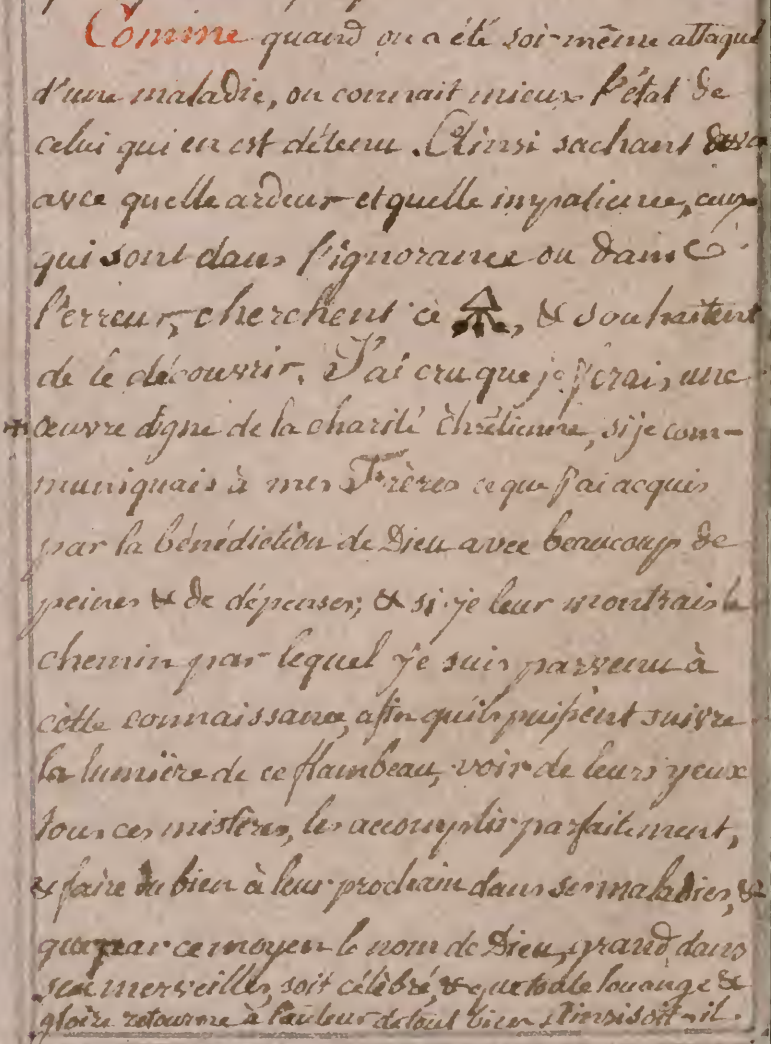 Comme quand on a été soi-même attaqué
d'une maladie, on connait mieux l'état de
celui qui en est détenu. Ainsi sachant
avec quelle ardeur et quelle impatience, ceux
qui sont dans l'ignorance ou dans
l'erreur, cherchent ce 🜍, & souhaitent
de le découvrir. J'ai cru que je ferais une
œuvre digne de la charité chrétienne, si je com-
muniquais à mes Frères ce que j'ai acquis
par la bénédiction de Dieu avec beaucoup de
peines & de dépenses; & si je leur montrais le
chemin par lequel je suis parvenu à
cette connaissance, afin qu'ils puissent suivre
la lumière de ce flambeau, voir de leurs yeux
tous ces mistères, les accomplir parfaitement,
& faire du bien à leur prochain dans ses maladies, &
que par ce moyen le nom de Dieu, grand dans
ses merveilles, soit célébré, & que toute louange &
gloire retourne à l'auteur de tout bien Ainsi soit-il.